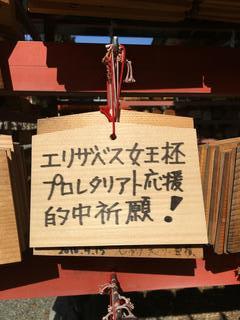 エリザベス女王杯
プロレタリアト応援
的中祈願!